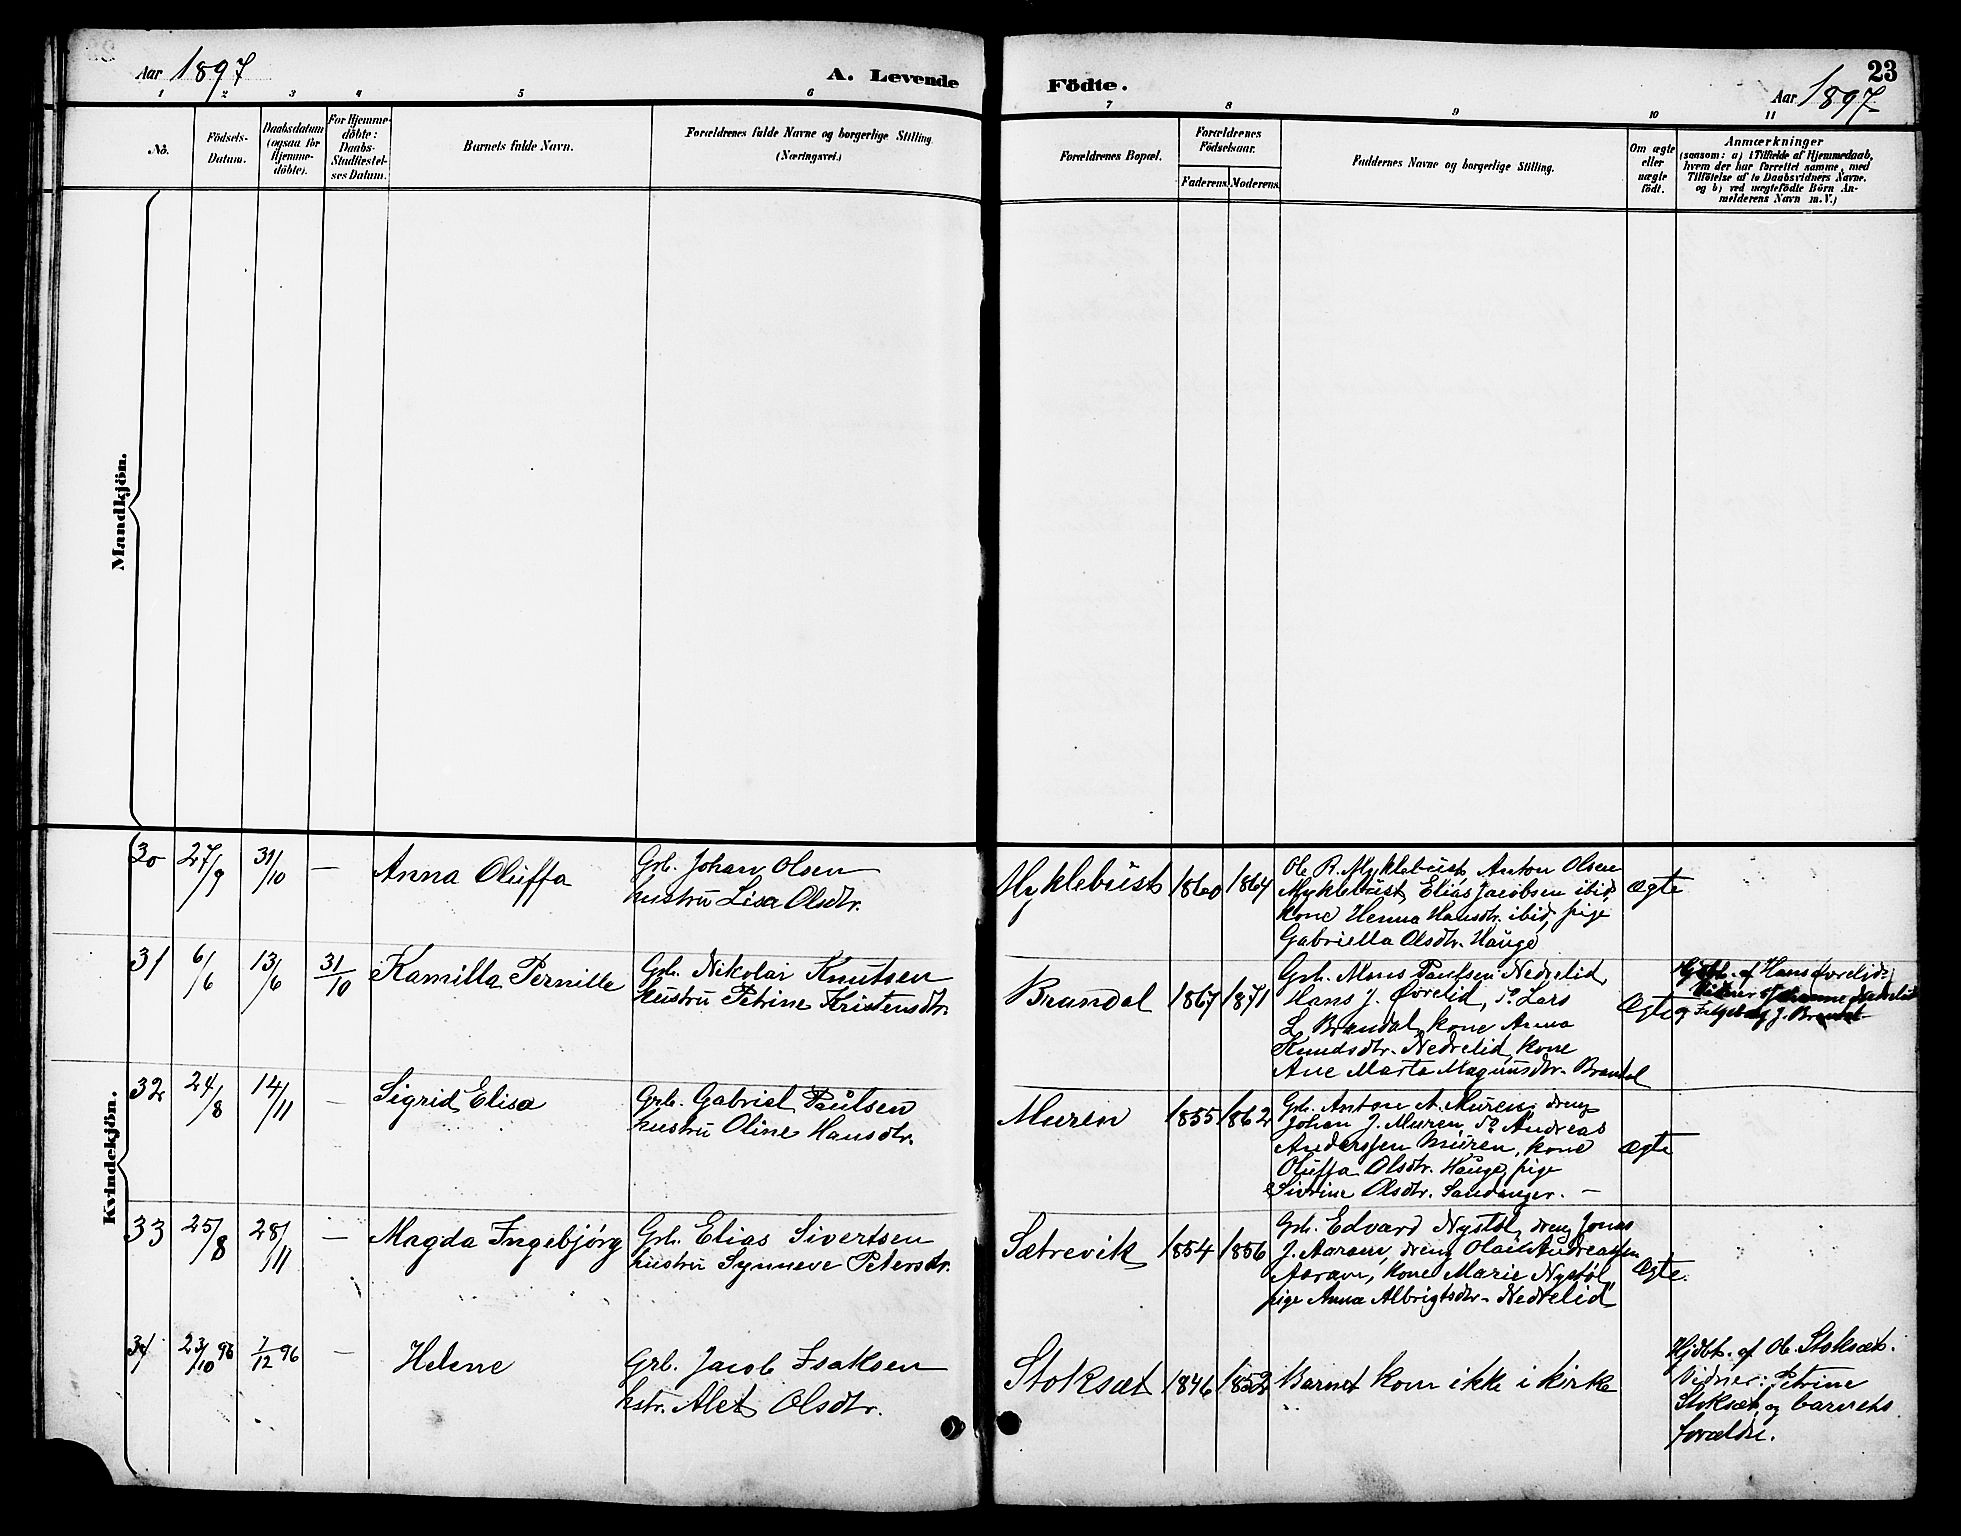 Aar 1897
A. Levende
Födte.
23
Aar 1897
1 2 3 4 5 6 7 8 9 10 11
No.
Födsels-
Datum.
Daabsdatum
(ogsaa for
Hjemme-
döbte).
For Hjemme-
döbte:
Daabs-
Stadfæstel-
ses Datum.
Barnets fulde Navn.
Forældrenes fulde Navne og borgerlige Stilling
(Næringsvei.)
Forældrenes Bopæl.
Forældrenes
Födselsaar.
Faderens. Moderens.
Faddernes Navne og borgerlige Stilling.
Om ægte
eller
uægte
födt.
Anmærkninger
(saasom: a) i Tilfælde af Hjemmedaab,
hvem der har forrettet samme, med
Tilföielse af to Daabsvidners Navne.
og b) ved uægtefödte Börn An-
melderens Navn m.V.)
Mandkjön.
Kvindekjön.
30 27/9 31/10 — Anna Oluffa
Grb. Johan Olsen
hustru Lisa Olsdtr.
Myklebust 1860 1864
Ole R. Myklebust, Anton Olsen
Myklebust, Elias Jacobsen ibid,
kone Henna Hansdtr. ibid, pige
Gabriella Olsdtr. Hauge
Ægte
31 6/6 13/6 31/10 Kamilla Pernille
Grb. Nikolai Knutsen
hustru Petrine Kristensdtr.
Brandal 1867 1871
Grb. Mons Paulsen Nedrelid,
Hans J. Øvrelid, Do Lars
L. Brandal, kone Anna
Knudsdtr. Nedrelid, kone
Ane Marta Magnusdtr. Brandal
Ægte
Hjdbt. af Hans Øvrelid.
Vidner: Johanne Nedrelid
og J. Brandal
32 24/8 14/11 — Sigrid Elisa
Grb. Gabriel Paulsen
hustru Oline Hansdtr.
Muren 1855 1862
Grb. Anton A. Muren, dreng
Johan J. Muren, Do Andreas
Anderssen Muren, kone
Oluffa Olsdtr. Hauge, pige
Sivrine Olsdtr. Sandanger. —
Ægte
33 25/8 28/11 — Magda Ingebjørg
Grb. Elias Sivertsen
hustru Synneve Petersdtr.
Sætrevik 1854 1856
Grb. Edvard Nystøl, dreng Jonas
J. Aaram, dreng Olai Andreassen
Aaram, kone Marie Nystøl,
pige Anna Albrigtsdtr. Nedrelid
Ægte.
34 23/10 96 7/12 96 — Helene
Grb. Jacob Isaksen
hstr. Alet Olsdtr.
Stoksæt 1846 1852 Barnet kom ikke i kirke
Hjdbt. af Ole Stoksæt.
Vidner: Petrine
Stoksæt og barnets
forældre.